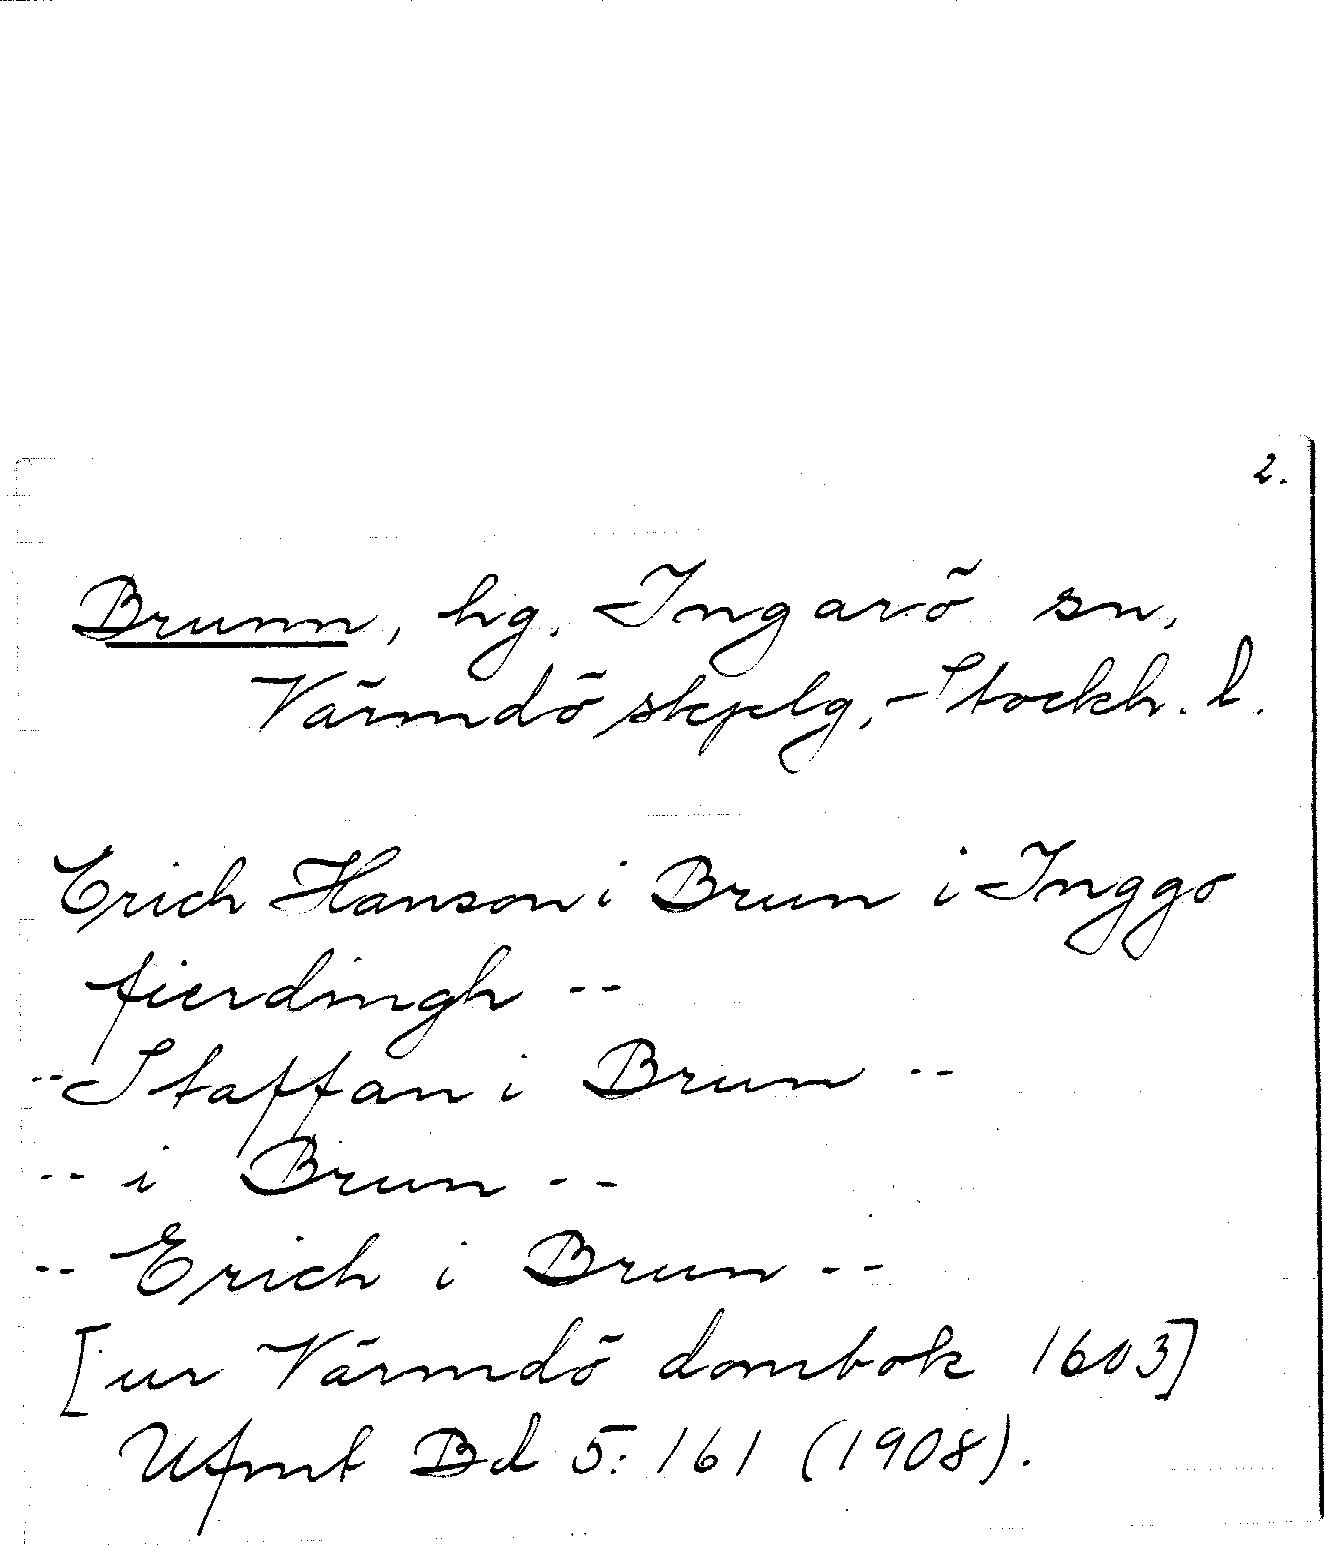 2.
Brunn, hg, Ingarö sn,
Värmdö skplg, Stockh. l.
Erich Hanson i Brun i Inggo
fierdingh --
-- Staffan i Brun --
-- i Brun --
-- Erich i Brun --
[ur Värmdö dombok 1603]
Ufmt Bd 5: 161 (1908).